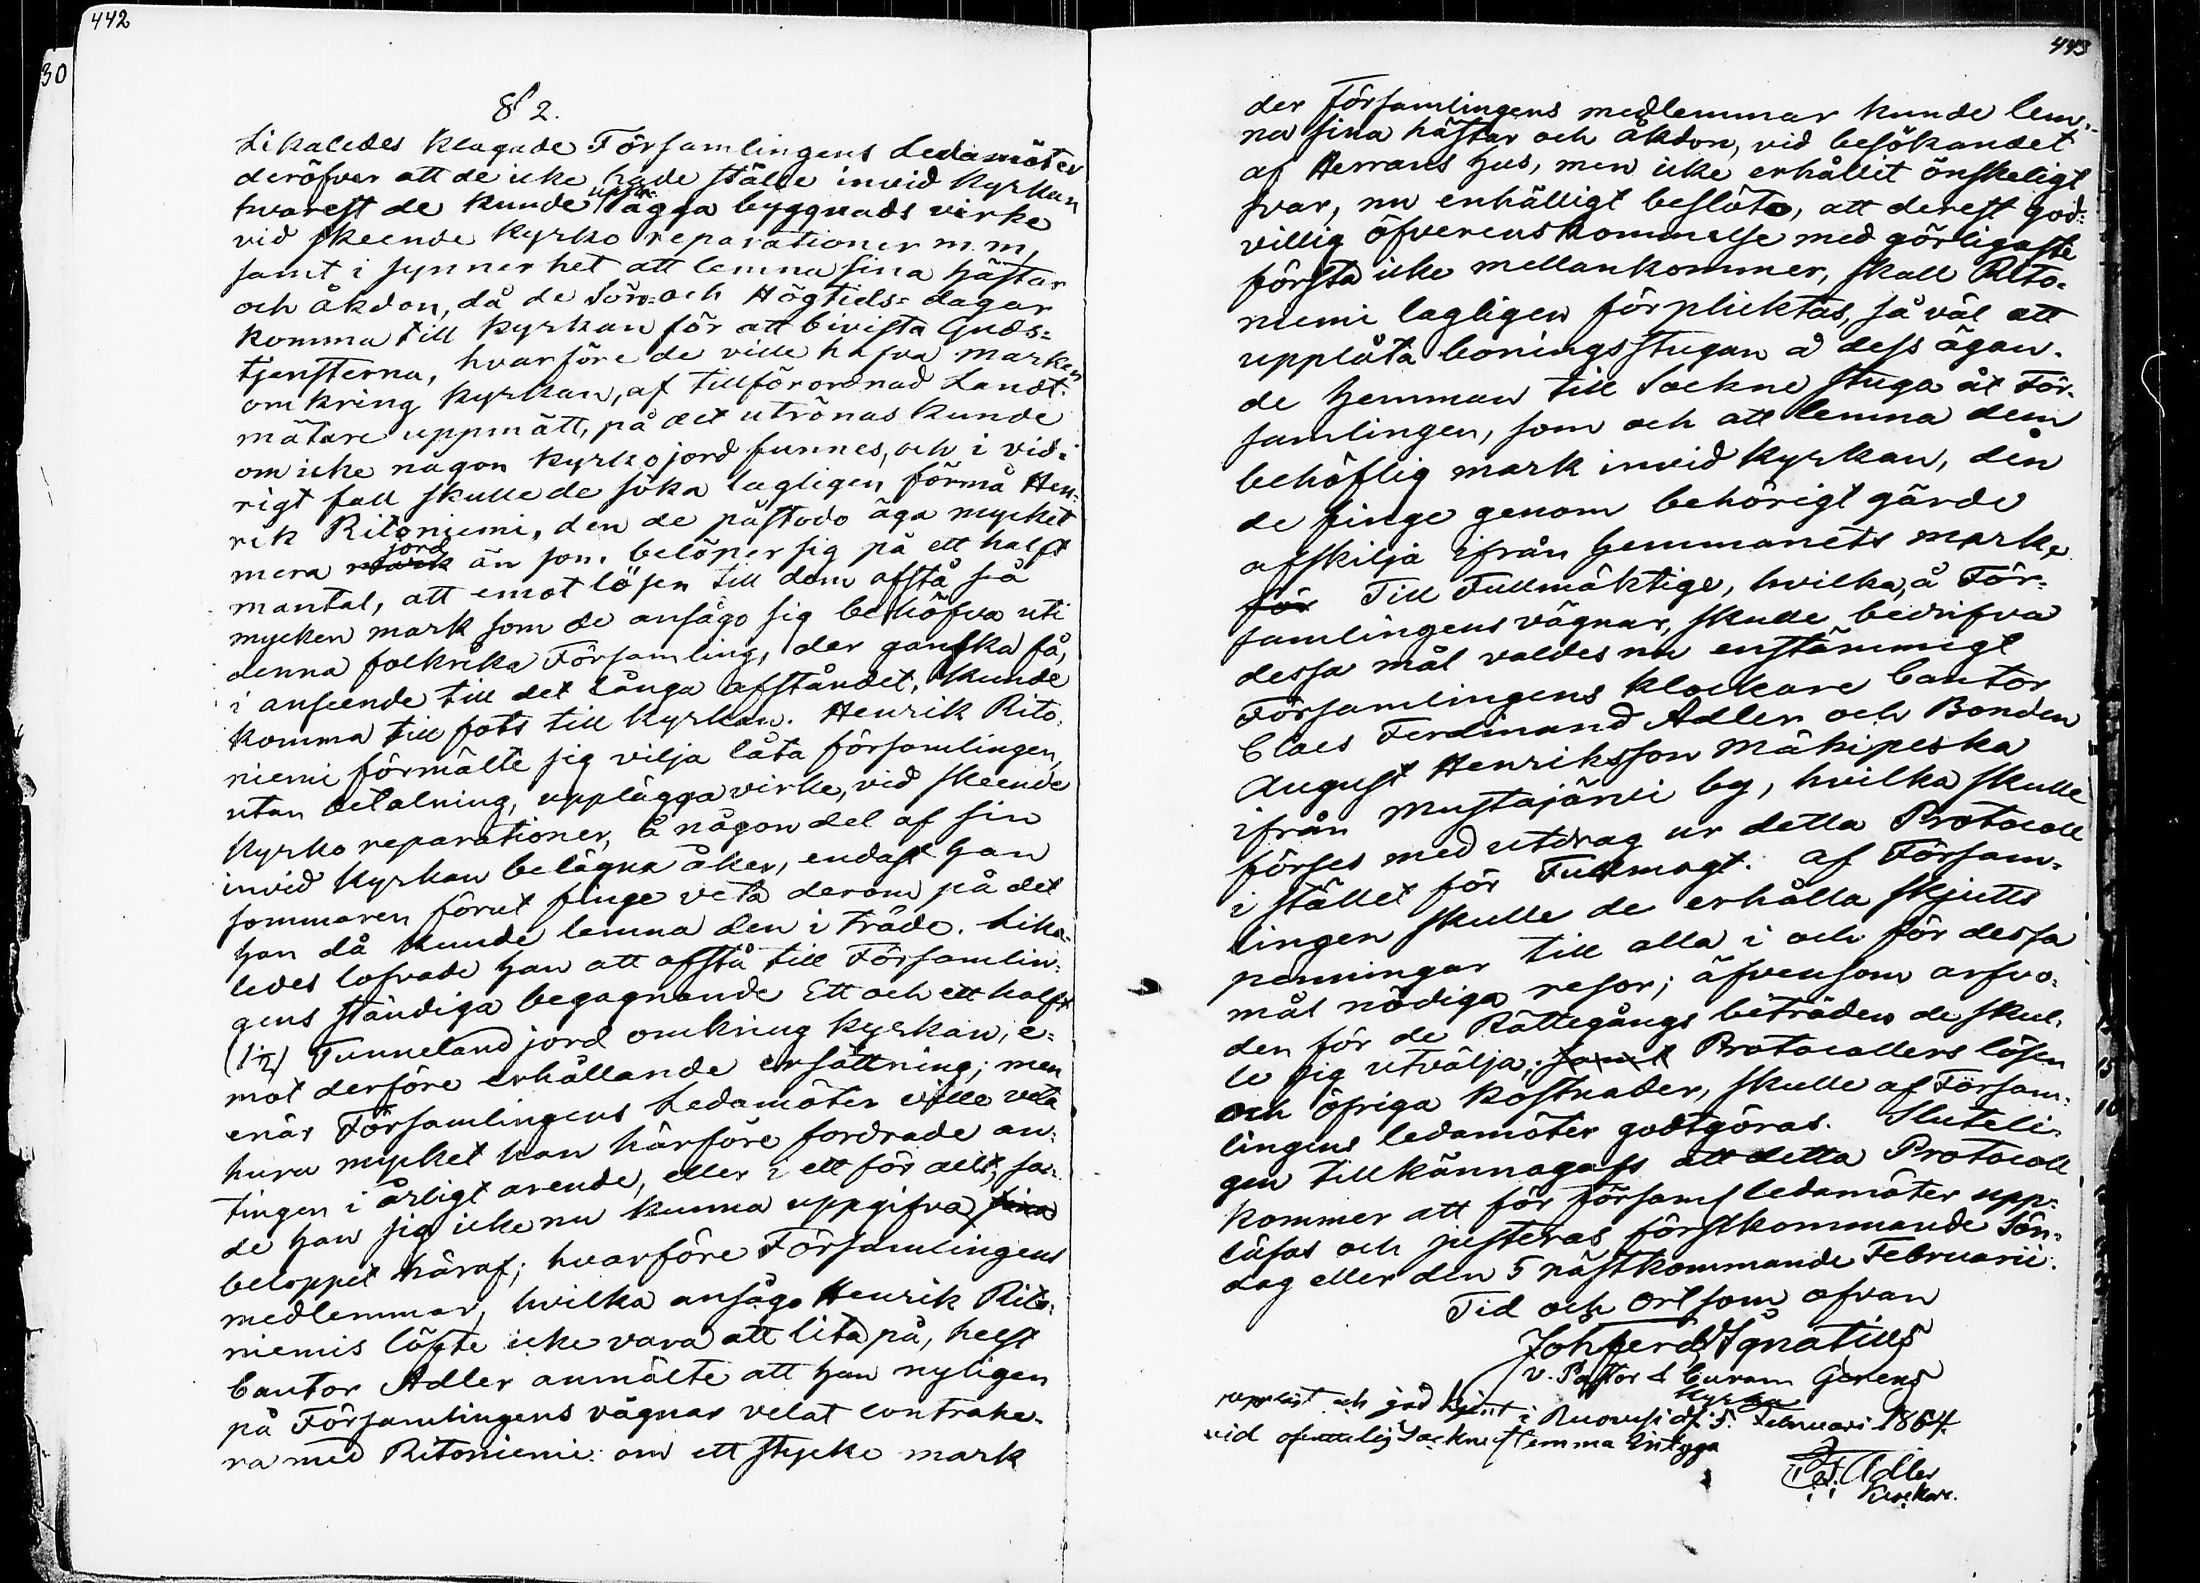 442
30
§ 2.
Likaledes klagade Församlingens Ledamöter
deröfver att de icke hade ställe invid Kyrkan
hvarest de kunde upplägga byggnads virke
vid skeende Kyrko reparationer m. m,
samt i synnerhet att lemna sina hästar
och åkdon, då de Sön- och Högtids= dagar
komma till Kyrkan för att bivista Guds=
tjensterna, hvarföre de ville hafva marken
omkring Kyrkan, af tillförordnad Landt-
mätare uppmätt, på det utrönas kunde
om icke någon Kyrkojord funnes, och i vid-
rigt fall skulle de söka lagligen förmå Hen-
rik Ritoniemi, den de påstodo äga mycket
mera jord än som belöper sig på ett halft
mantal, att emot lösen till dem afstå så
mycken mark som de ansågo sig behöfva uti
denna folkrika Församling, der ganska få,
i anseende till det långa afståndet, kunde
komma till fots till Kyrkan. Henrik Rito-
niemi förmälte sig vilja låta församlingen,
utan betalning, upplägga virke, vid skeende
Kyrko reparationer, å någon del af sin
invid Kyrkan belägna åker, endast han
sommaren förut finge veta derom på det
han då kunde lemna den i träde. Lika-
ledes lofvade han att afstå till Församlin-
gens ständiga begagnande Ett och ett halft
(1½) Tunneland jord omkring Kyrkan, e-
mot derföre erhållande ersättning; men
enär Församlingens Ledamöter ville veta
huru mycket han härföre fordrade an-
tingen i årligt arende, eller i ett för allt, sa-
de han sig icke nu kunna uppgifva sina
beloppet häraf; hvarföre Församlingens
medlemmar, hvilka ansågo Henrik Rito-
niemis löfte icke vara att lita på, helst
Cantor Adler anmälte att han nyligen
på Församlingens vägnar velat contrahe-
ra med Ritoniemi om ett stycke mark
443
der Församlingens medlemmar kunde lem-
na sina hästar och åkdon, vid besökandet
af Herrans hus, men icke erhållit önskeligt
svar, nu enhälligt beslöto, att derest god-
villig öfverenskommelse med görligaste
första icke mellankommer, skall Rito-
niemi lagligen förpliktas, så väl att
upplåta boningsstugan å dess ägan-
de hemman till Sockne stuga åt För-
samlingen, som och att lemna dem
behöflig mark invid Kyrkan, den
de finge genom behörigt gärde
afskilja ifrån hemmanets mark,
för Till Fullmäktige, hvilka, å För-
samlingens vägnar, skulle bedrifva
dessa mål valdes nu enstämmigt
Församlingens klockare Cantor
Claes Ferdinand Adler och Bonden
August Henriksson Mäkipeska
ifrån Mustajärvi by, hvilka skulle
förses med utdrag ur detta Protocoll
i stället för Fullmagt. af Församl-
lingen skulle de erhålla skjutts
penningar till alla i och för dessa
mål nödiga resor; äfvensom arfvo-
den för de Rättegångs biträden de skul-
le sig utvälja; samt Protocollers lösen
och öfriga kostnader, skulle af Försam-
lingens ledamöter godtgöras. Sluteli-
gen tillkännagafs att detta Protocoll
kommer att för församls ledamöter upp-
läsas och justeras förstkommande Sön-
dag eller den 5 nästkommande Februarii.
Tid och Ort som ofvan
Joh Ferd Ignatius
v. Pastor & Curam Gerens
uppläst och god kjent i Ruovesi Kyrka d. 5. Februari 1864.
vid ofentelig Sockne stemma Intyga
C. F. Adler
Klockare.